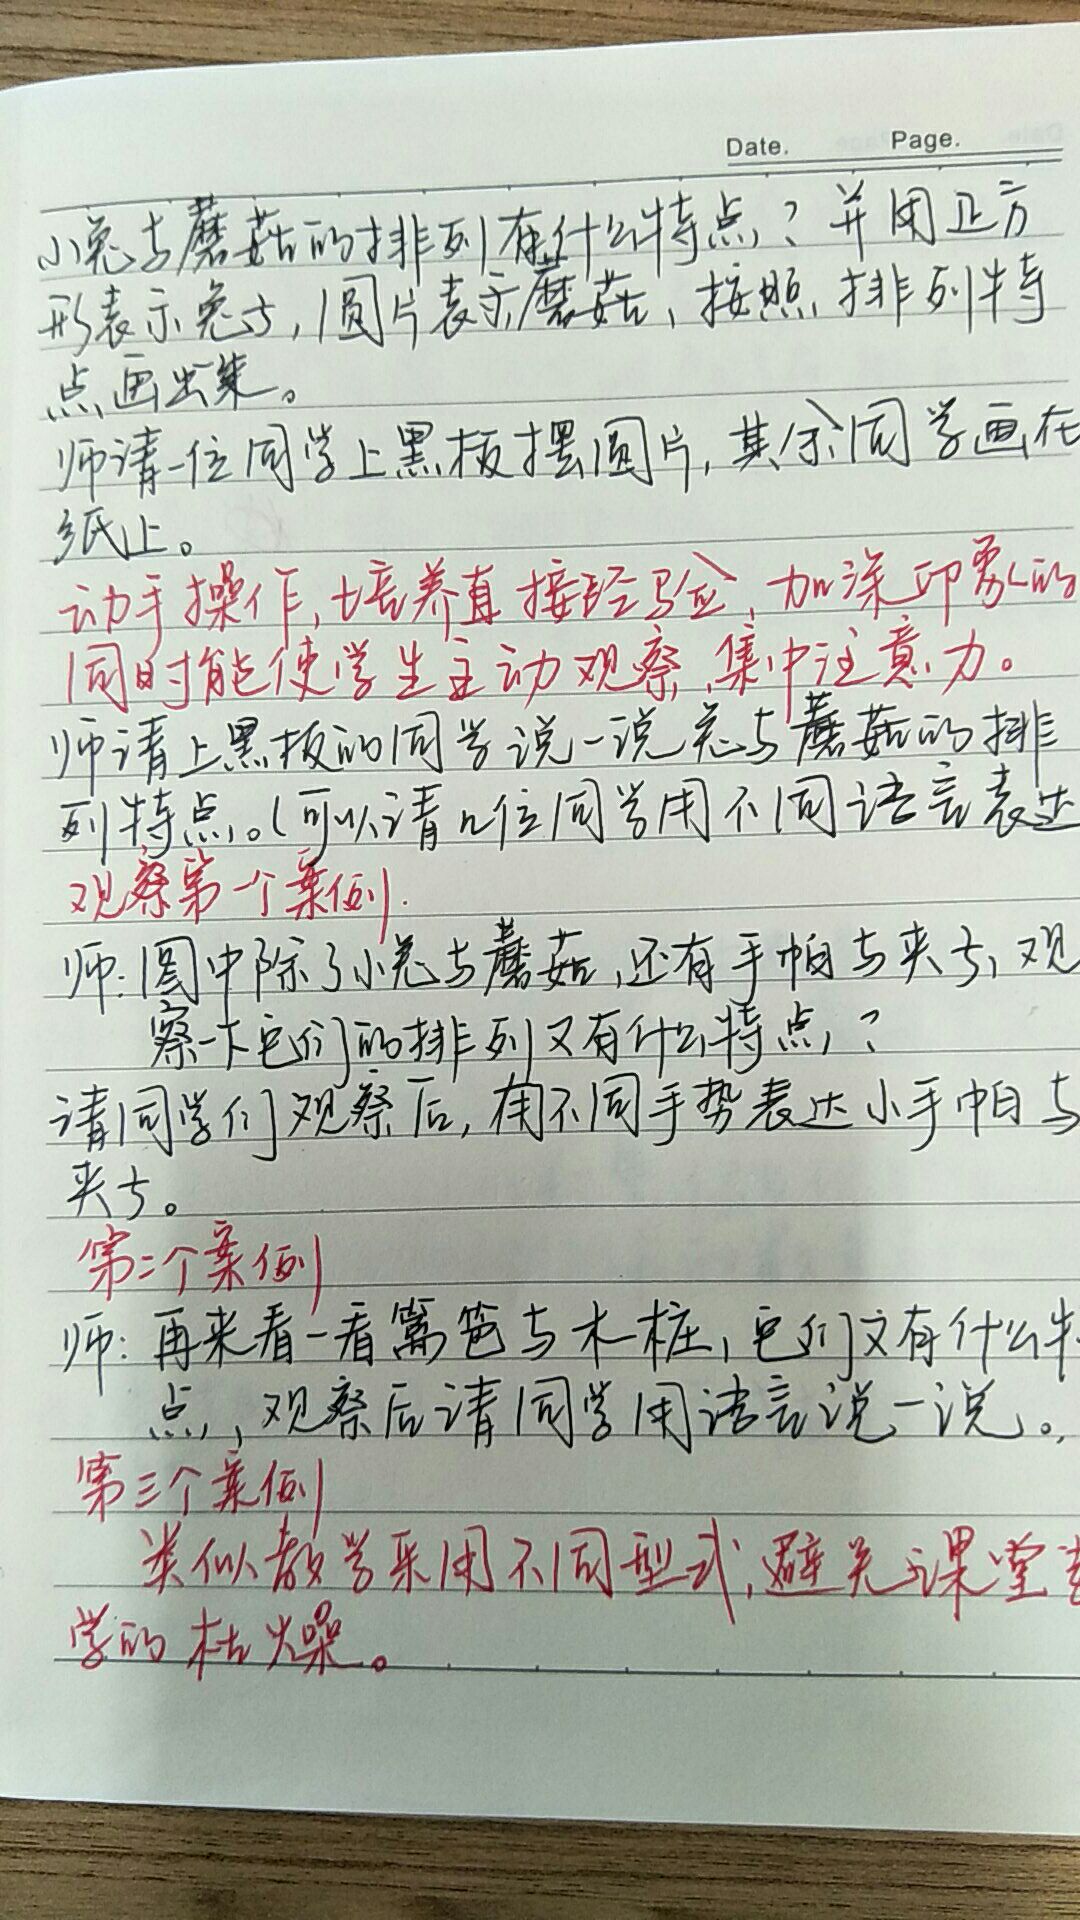 Date. Page.
小兔与蘑菇的排列有什么特点？并用正方
形表示兔子，圆片表示蘑菇，按照排列特
点画出来。
师请一位同学上黑板摆圆片，其余同学画在
纸上。
动手操作，培养直接经验，加深印象的
同时能使学生主动观察，集中注意力。
师请上黑板的同学说一说兔与蘑菇的排
列特点。（可以请几位同学用不同语言表达
观察第一个案例.
师：图中除了小兔与蘑菇，还有手帕与夹子，观
察一下它们的排列又有什么特点？
请同学们观察后，用不同手势表达小手帕与
夹子。
第二个案例
师：再来看一看篱笆与木桩，它们又有什么特
点，观察后请同学用语言说一说。
第三个案例
类似教学采用不同型式，避免课堂
学的枯燥。